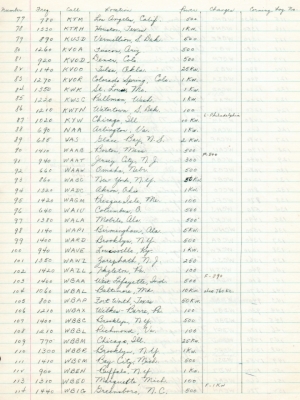 Number Freq. Call Location Power Changes
77 780 KTM Los Angeles Calif. 500
78 1330 KTRH Houston, Texas 1 Kw.
79 890 KUSD Vermillion S. Dak. 500
80 1260 KVOA Tucson Ariz. 500
81 920 KVOD Denver, Colo 500
84 1140 KVOO Tulsa, Okla. 25 Kw.
83 1270 KVOR Colorado Springs, Colo. 1 Kw.
84 1350 KWK St. Louis, Mo. 1 Kw.
85 1220 KWSC Pullman, Wash. 1 Kw.
86 1210 KWTN Watertown, S. Dak. 100
87 1020 KYW Chicago, Ill. 10 Kw. Philadelphia
88 690 NAA Arlington, Va. 1 Kw.
89 VAS Glace Bay, N.S. 2 Kw.
90 1410 WAAB Boston, Mass. 500
91 940 WAAT Jersey City, N.J. 300
92 660 WAAW Omaha, Nebr. 500
93 860 WABC New York, N.Y. 50 Kw.
94 1320 WADC Akron, Ohio 1 Kw.
95 1420 WAGM Presque Isle, Me. 100
96 640 WAIU Columbus, O. 500
97 1380 WALA Mobile, Ala. 500
98 1140 WAPI Birmingham, Ala. 5 Kw.
99 1400 WARD Brooklyn, N.Y. 500
100 940 WAVE Louisville, Ky. 1 Kw.
101 1350 WAWZ Zarephath, N.J. 250
102 1420 WAZL Hazleton, Pa. 100
103 1400 WBAA West Lafayette, Ind. 500
104 1060 WBAL Baltimore, Md. 10 Kw.
105 800 WBAP Fort Worth, Texas 50 Kw.
106 1210 WBAX Wilkes Barre, Pa. 100
107 1400 WBBC Brooklyn, N.Y. 500
108 1210 WBBL Richmond, Va. 100
109 770 WBBM Chicago, Ill. 25 Kw.
110 1300 WBBR Brooklyn, N.Y. 1 Kw.
111 1410 WBCM Bay City, Mich. 500
112 900 WBEN Buffalo, N.Y. 1 Kw.
113 1310 WBEO Marquette, Mich. 100
114 1440 WBIG Greensboro, N.C. 500